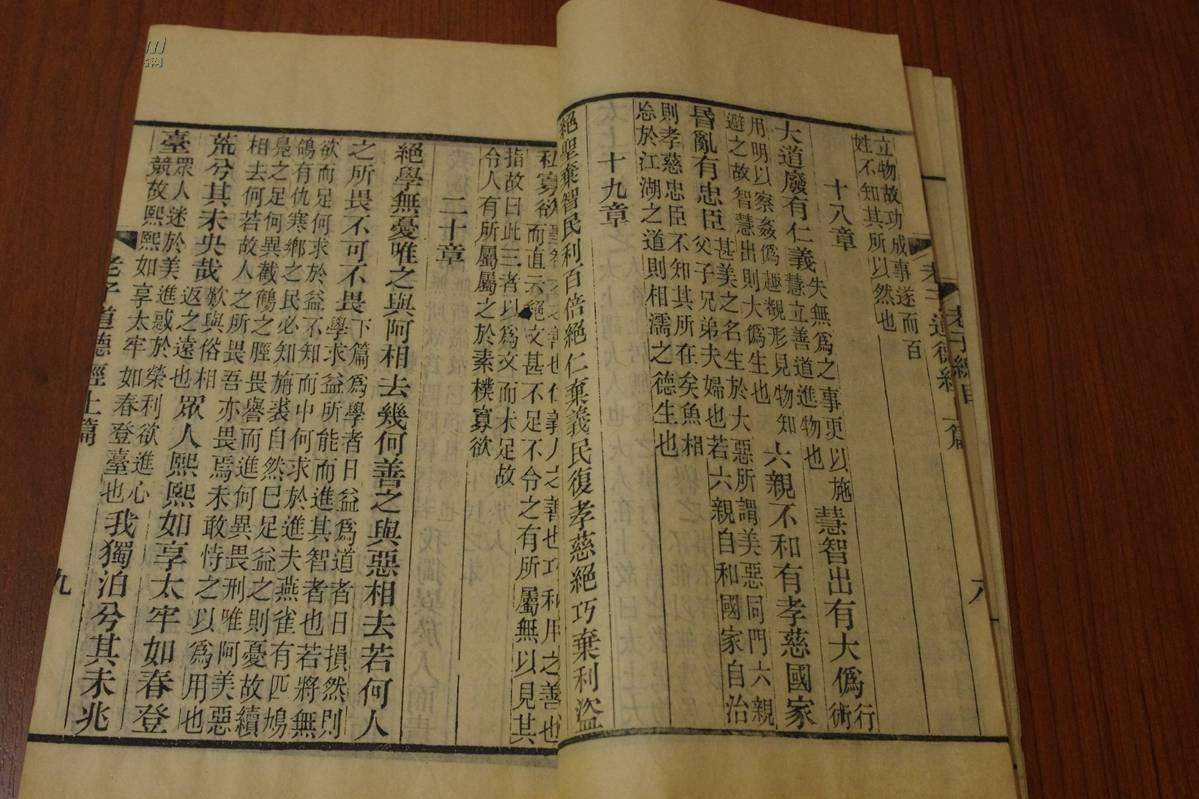 立物故功成事遂而百
姓不知其所以然也
十八章
大道廢有仁義失無為之事更以施慧立善道進物也慧智出有大偽行術
用明以察姦偽趣覩形見物知避之故智慧出則大偽生也六親不和有孝慈國家
昬亂有忠臣甚美之名生於大惡所謂美惡同門六親父子兄弟夫婦也若六親自和國家自治
則孝慈忠臣不知其所在矣魚相
忘於江湖之道則相濡之德生也
十九章
絕聖棄智民利百倍絕仁棄義民復孝慈絕巧棄利盜
私寡欲善也仁義人之善也巧利用之善也而直云絕文甚不足不令之有所屬無以見其
指故曰此三者以為文而未足故
令人有所屬屬之於素樸寡欲
二十章
絕學無憂唯之與阿相去幾何善之與惡相去若何人
之所畏不可不畏下篇為學者日益為道者日損然則學求益所能而進其智者也若將無
欲而足何求於益不知而中何求於進夫燕雀有匹鳩
鴿有仇寒鄉之民必知旃裘自然已足益之則憂故續
鳧之足何異截鶴之脛畏譽而進何異畏刑唯阿美惡
相去何若故人之所畏吾亦畏焉未敢恃之以為用也
荒兮其未央哉歎與俗相返之遠也眾人熙熙如享太牢如春登
臺眾人迷於美進惑於榮利欲進心競故熙熙如享太牢如春登臺也我獨泊兮其未兆
老子道德經上篇
九